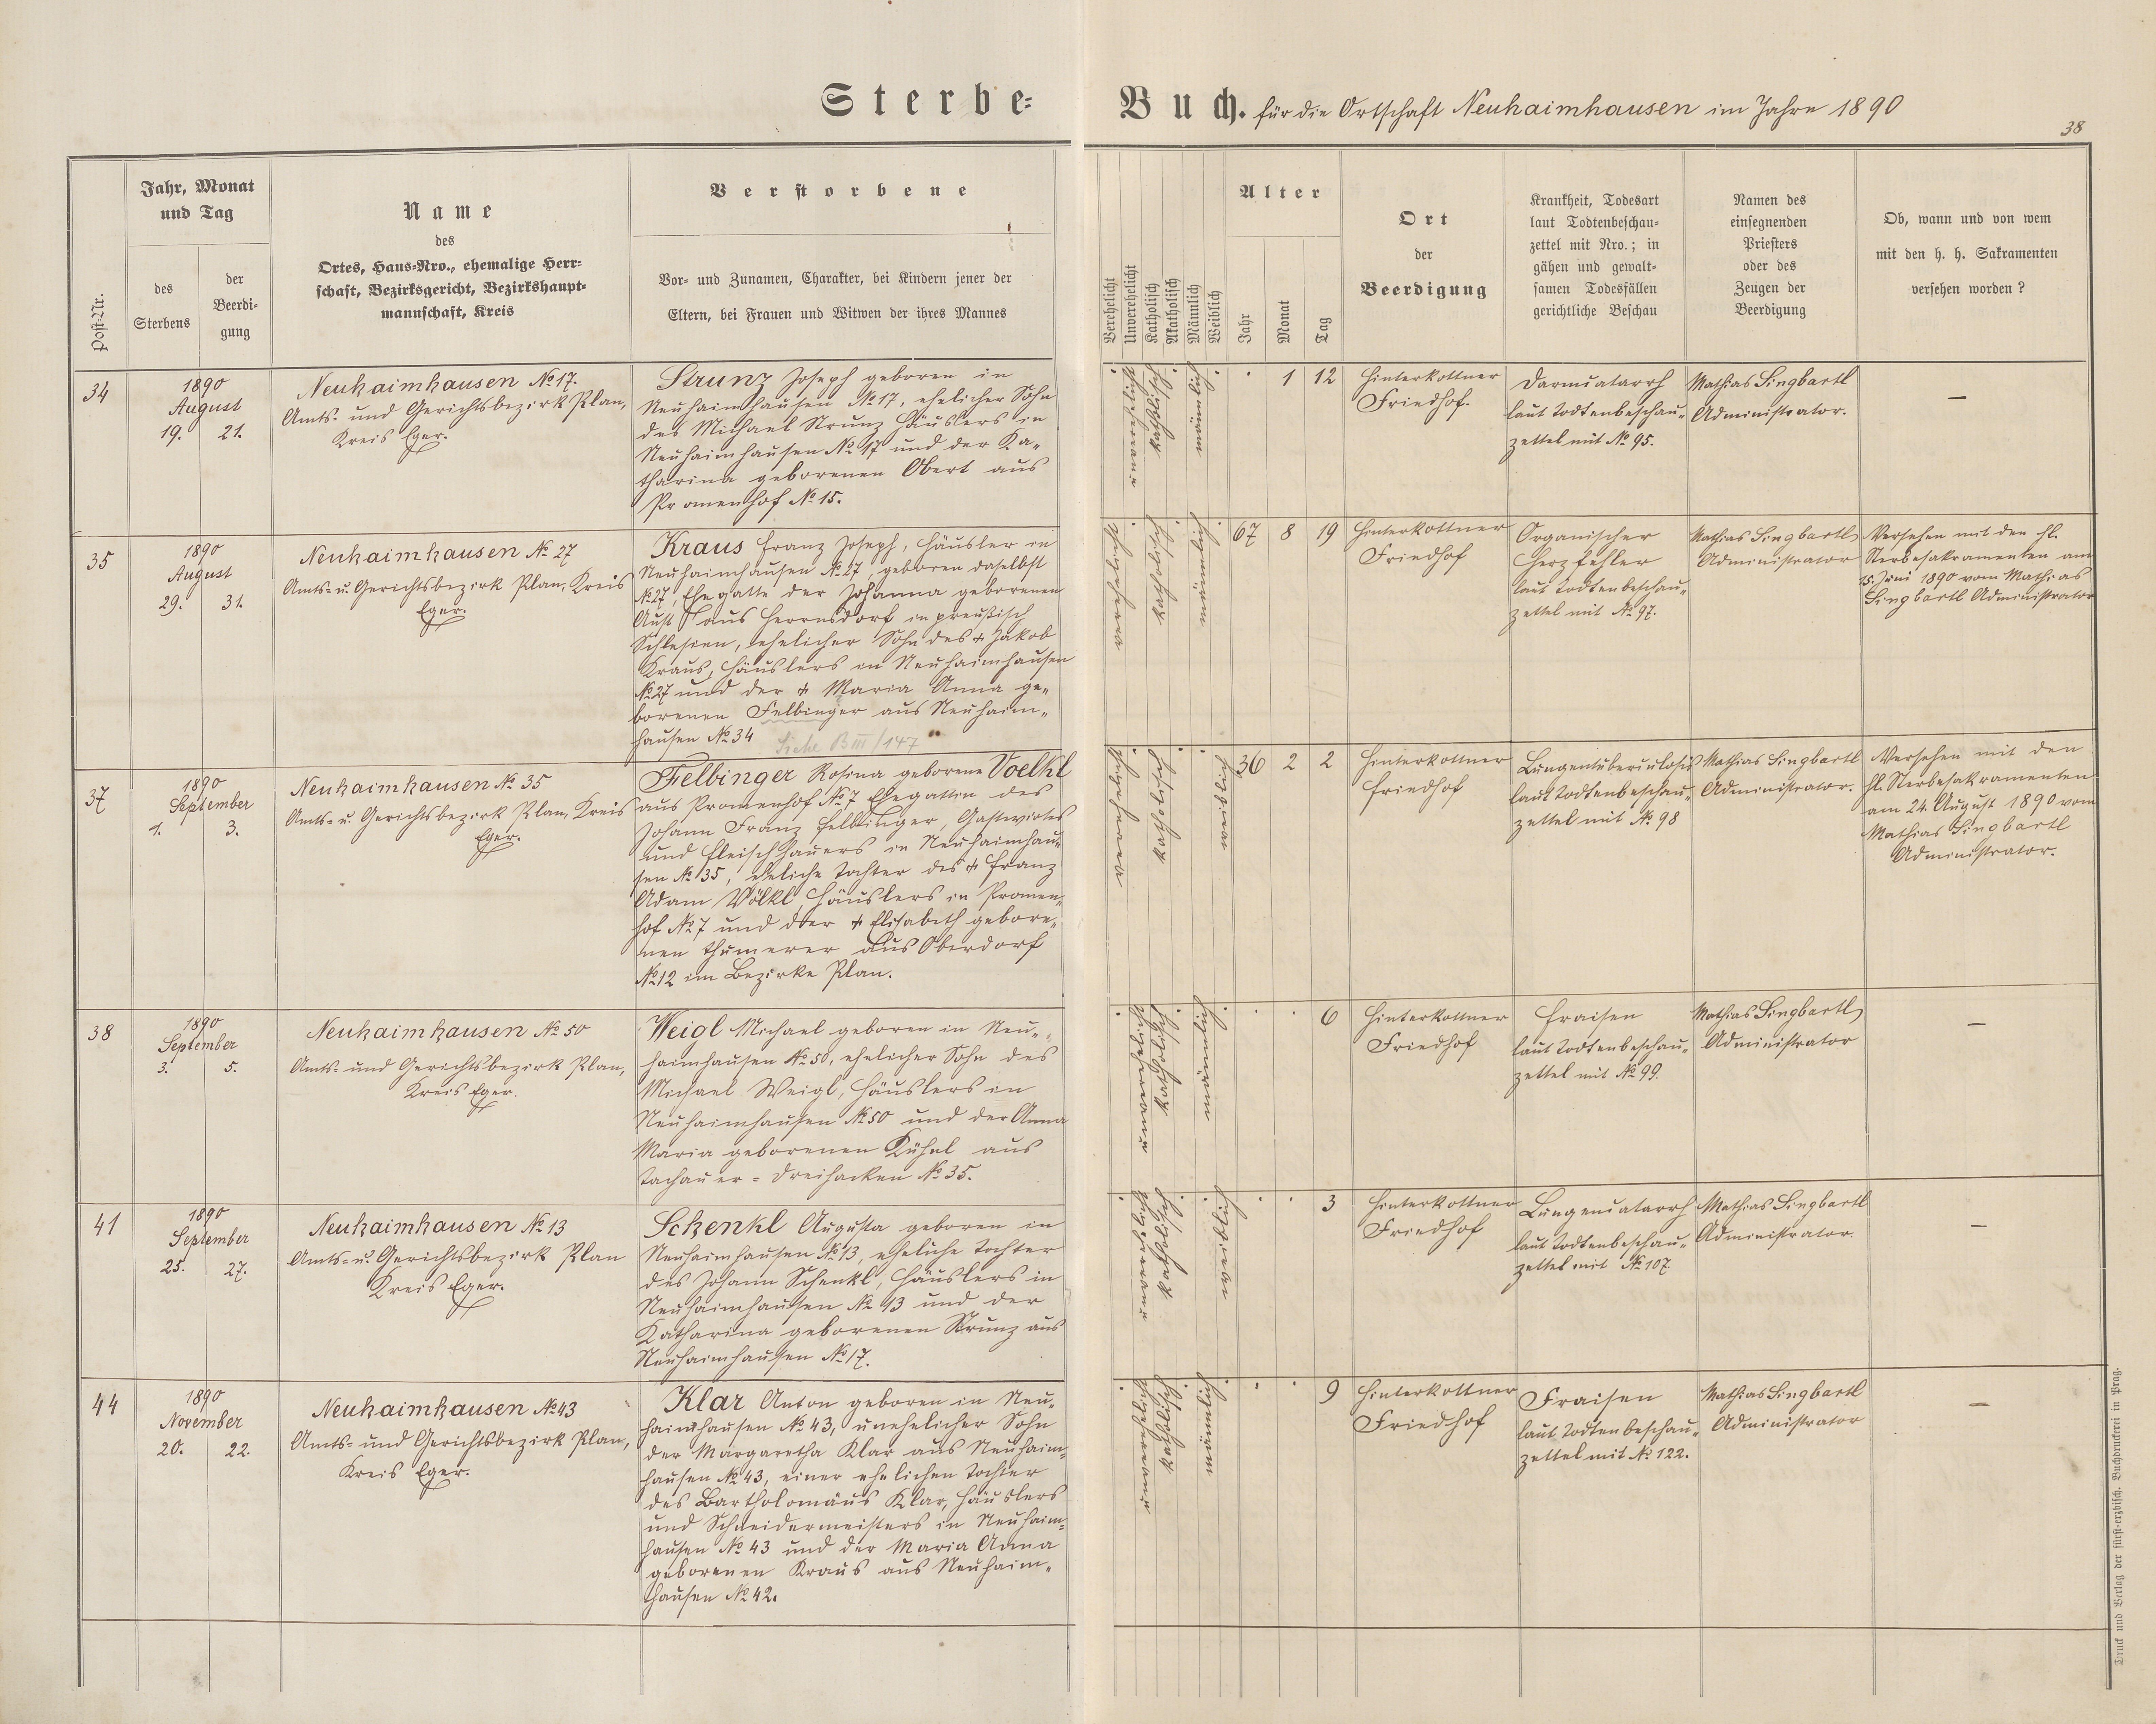 Sterbe-
Buch. für die Ortschaft Neuhaimhausen im Jahre 1890
38
Post-Nr.
Jahr, Monat
und Tag
des
Sterbens
der
Beerdi-
gung
Name
des
Ortes, Haus-Nro., ehemalige Herr-
schaft, Bezirksgericht, Bezirkshaupt-
mannschaft, Kreis
Verstorbene
Vor- und Zunamen, Charakter, bei Kindern jener der
Eltern, bei Frauen und Witwen der ihres Mannes
Verehelicht
Unverehelicht
Katholisch
Akatholisch
Männlich
Weiblich
Alter
Jahr
Monat
Tag
Ort
der
Beerdigung
Krankheit, Todesart
laut Todtenbeschau-
zettel mit Nro.; in
gähen und gewalt-
samen Todesfällen
gerichtliche Beschau
Namen des
einsegnenden
Priesters
oder des
Zeugen der
Beerdigung
Ob, wann und von wem
mit den h. h. Sakramenten
versehen worden?
34
1890
August
19. 21.
Neuhaimhausen № 17.
Amts- und Gerichtsbezirk Plan,
Kreis Eger.
Strunz Joseph geboren in
Neuhaimhausen № 17, ehelicher Sohn
des Michael Strunz Häuslers in
Neuhaimhausen № 17 und der Ka-
tharina geborenen Obert aus
Promenhof № 15.
unverehelicht
katholisch
männlich
1 12
Hinterkottner
Friedhof.
Darmcatarrh
laut Todtenbeschau-
zettel mit № 95.
Mathias Singbartl
Administrator.
—
35
1890
August
29. 31.
Neuhaimhausen № 27
Amts- u. Gerichtsbezirk Plan, Kreis
Eger.
Kraus Franz Joseph, Häusler in
Neuhaimhausen № 27, geboren daselbst
№ 27, Ehegatte der Johanna geborenen
Aust aus Herrnsdorf in preußisch
Schlesien, ehelicher Sohn des + Jakob
Kraus, Häuslers in Neuhaimhausen
№ 27 und der + Maria Anna ge-
borenen Felbinger aus Neuhaim-
hausen № 34 Siehe B III/147
verehelicht
katholisch
männlich
67 8 19
Hinterkottner
Friedhof
Organischer
Herzfehler
laut Todtenbeschau-
zettel mit № 97.
Mathias Singbartl
Administrator
Versehen mit den hl.
Sterbesakramenten am
15. Juni 1890 vom Mathias
Singbartl Administrator
37
1890
September
1. 3.
Neuhaimhausen № 35
Amts- u. Gerichtsbezirk Plan, Kreis
Eger.
Felbinger Rosina geborene Voelkl
aus Promenhof № 7 Ehegattin des
Johann Franz Felbinger, Gastwirtes
und Fleischhauers in Neuhaimhau-
sen № 35, eheliche Tochter des + Franz
Adam Völkl, Häuslers in Promen-
hof № 7 und der + Elisabeth gebore-
nen Thumerer aus Oberdorf
№ 12 im Bezirke Plan.
verehelicht
katholisch
weiblich
36 2 2
Hinterkottner
Friedhof
Lungentuberculosis
laut Todtenbeschau-
zettel mit № 98
Mathias Singbartl
Administrator.
Versehen mit den
hl. Sterbesakramenten
am 24. August 1890 vom
Mathias Singbartl
Administrator.
38
1890
September
3. 5.
Neuhaimhausen № 50
Amts- und Gerichtsbezirk Plan,
Kreis Eger.
Weigl Michael geboren in Neu-
haimhausen № 50, ehelicher Sohn des
Michael Weigl, Häuslers in
Neuhaimhausen № 50 und der Anna
Maria geborenen Kühnl aus
Tachauer-Dreihacken № 35.
unverehelicht
katholisch
männlich
6
Hinterkottner
Friedhof
Fraisen
laut Todtenbeschau-
zettel mit № 99.
Mathias Singbartl
Administrator
—
41
1890
September
25. 27.
Neuhaimhausen № 13
Amts- u. Gerichtsbezirk Plan
Kreis Eger.
Schenkl Augusta geboren in
Neuhaimhausen № 13, eheliche Tochter
des Johann Schenkl, Häuslers in
Neuhaimhausen № 13 und der
Katharina geborenen Strunz aus
Neuhaimhausen № 17.
unverehelicht
katholisch
weiblich
3
Hinterkottner
Friedhof
Lungencatarrh
laut Todtenbeschau-
zettel mit № 107.
Mathias Singbartl
Administrator.
—
44
1890
November
20. 22.
Neuhaimhausen № 43
Amts- und Gerichtsbezirk Plan,
Kreis Eger.
Klar Anton geboren in Neu-
haimhausen № 43, unehelicher Sohn
der Margaretha Klar aus Neuhaim-
hausen № 43, einer ehelichen Tochter
des Bartholomäus Klar, Häuslers
und Schneidermeisters in Neuhaim-
hausen № 43 und der Maria Anna
geborenen Kraus aus Neuhaim-
hausen № 42.
unverehelicht
katholisch
männlich
9
Hinterkottner
Friedhof
Fraisen
laut Todtenbeschau-
zettel mit № 122.
Mathias Singbartl
Administrator
—
Druck und Verlag der fürst-erzbisch. Buchdruckerei in Prag.